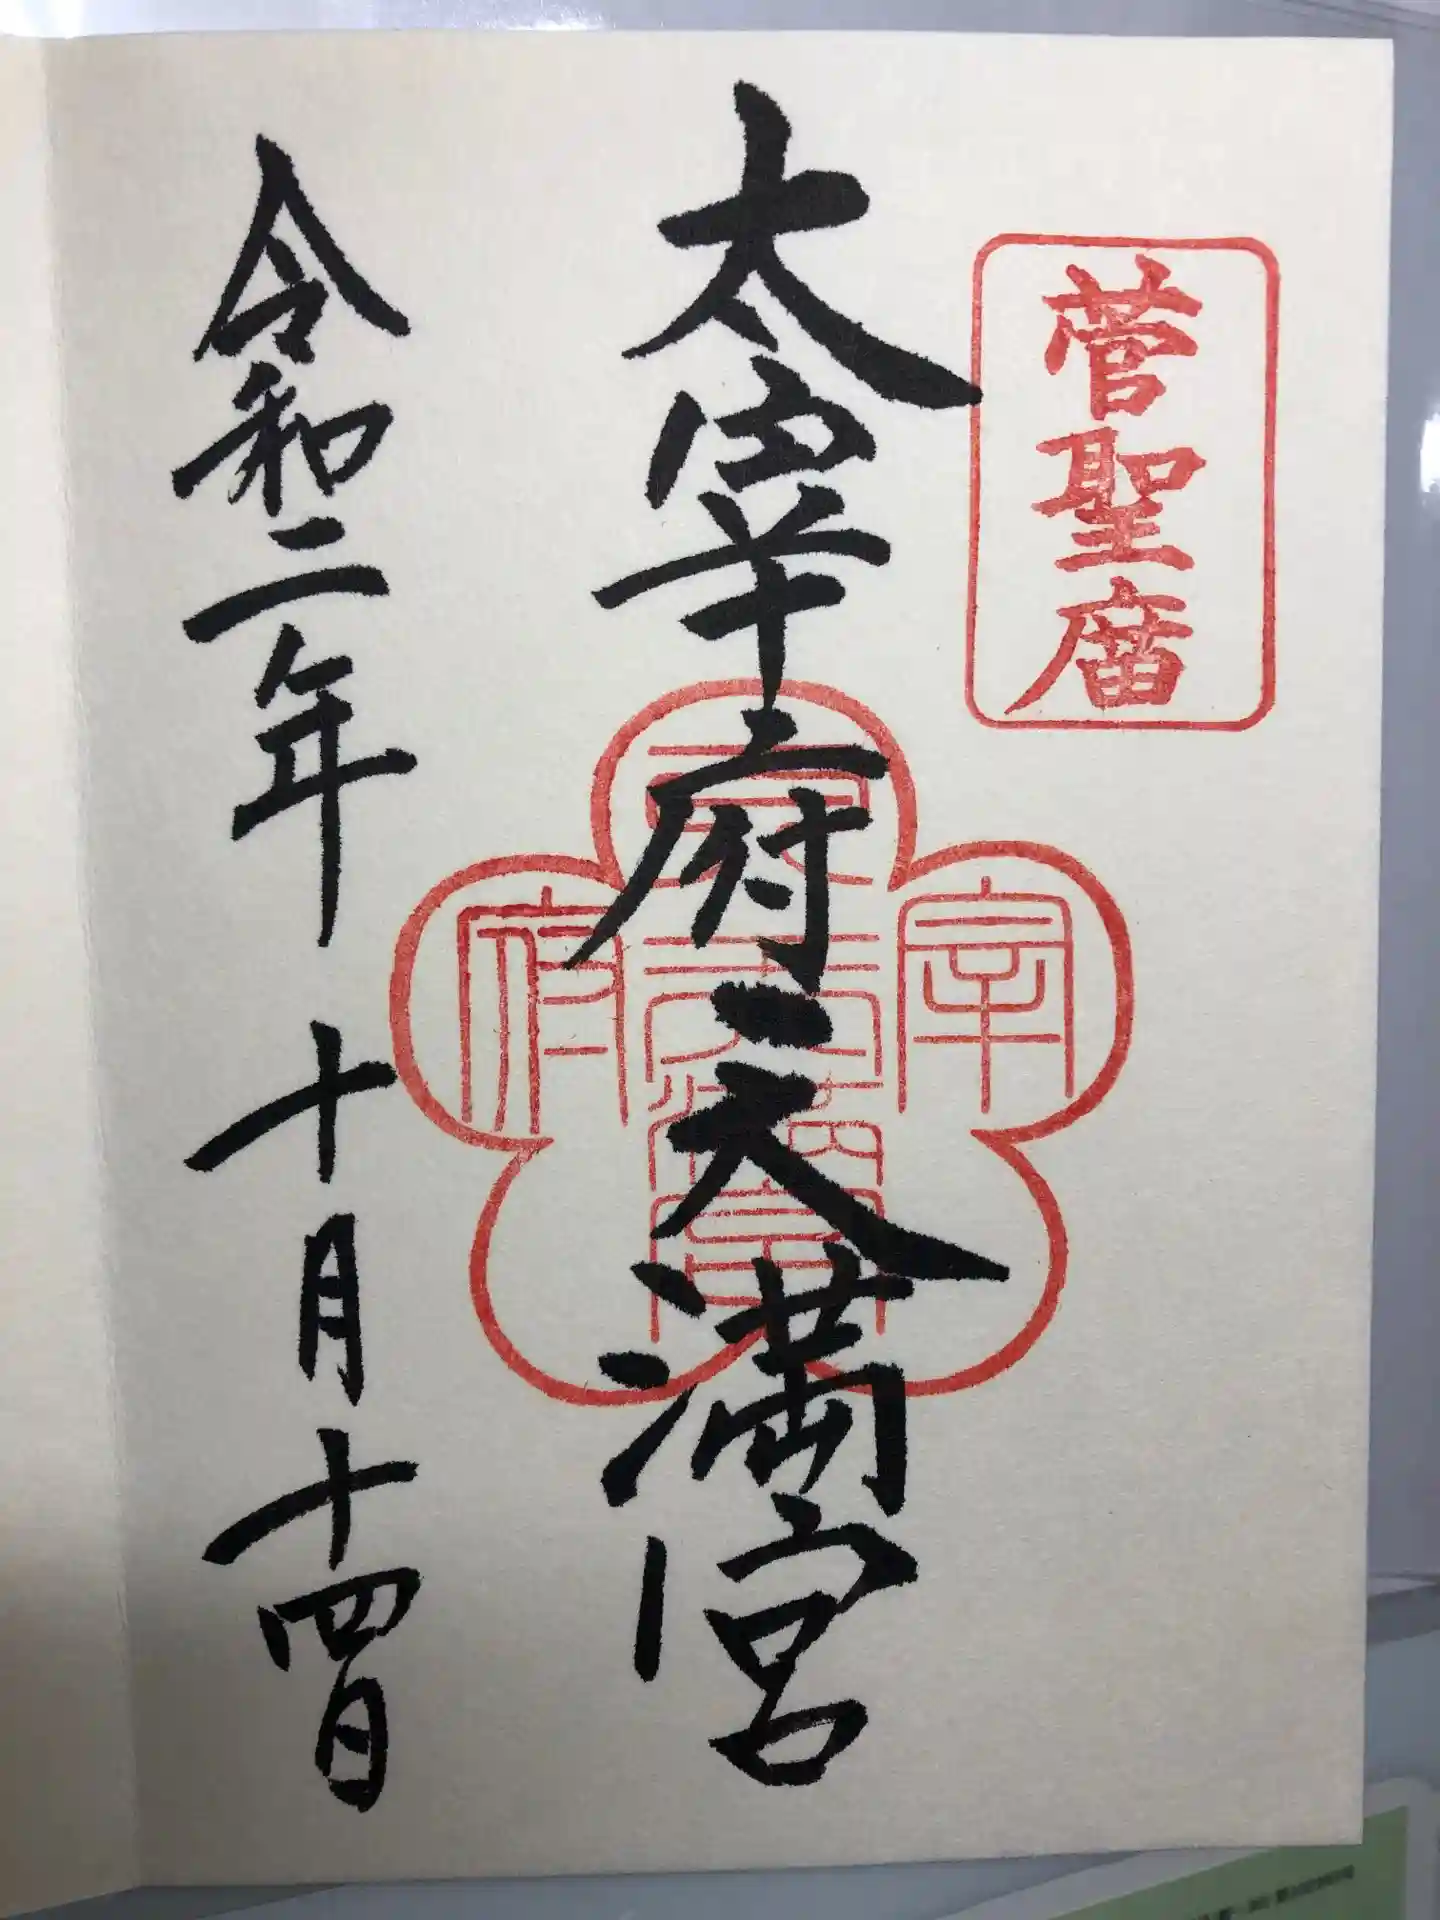 菅聖庿
太宰府天満宮
令和二年 十月十四日
宰
府